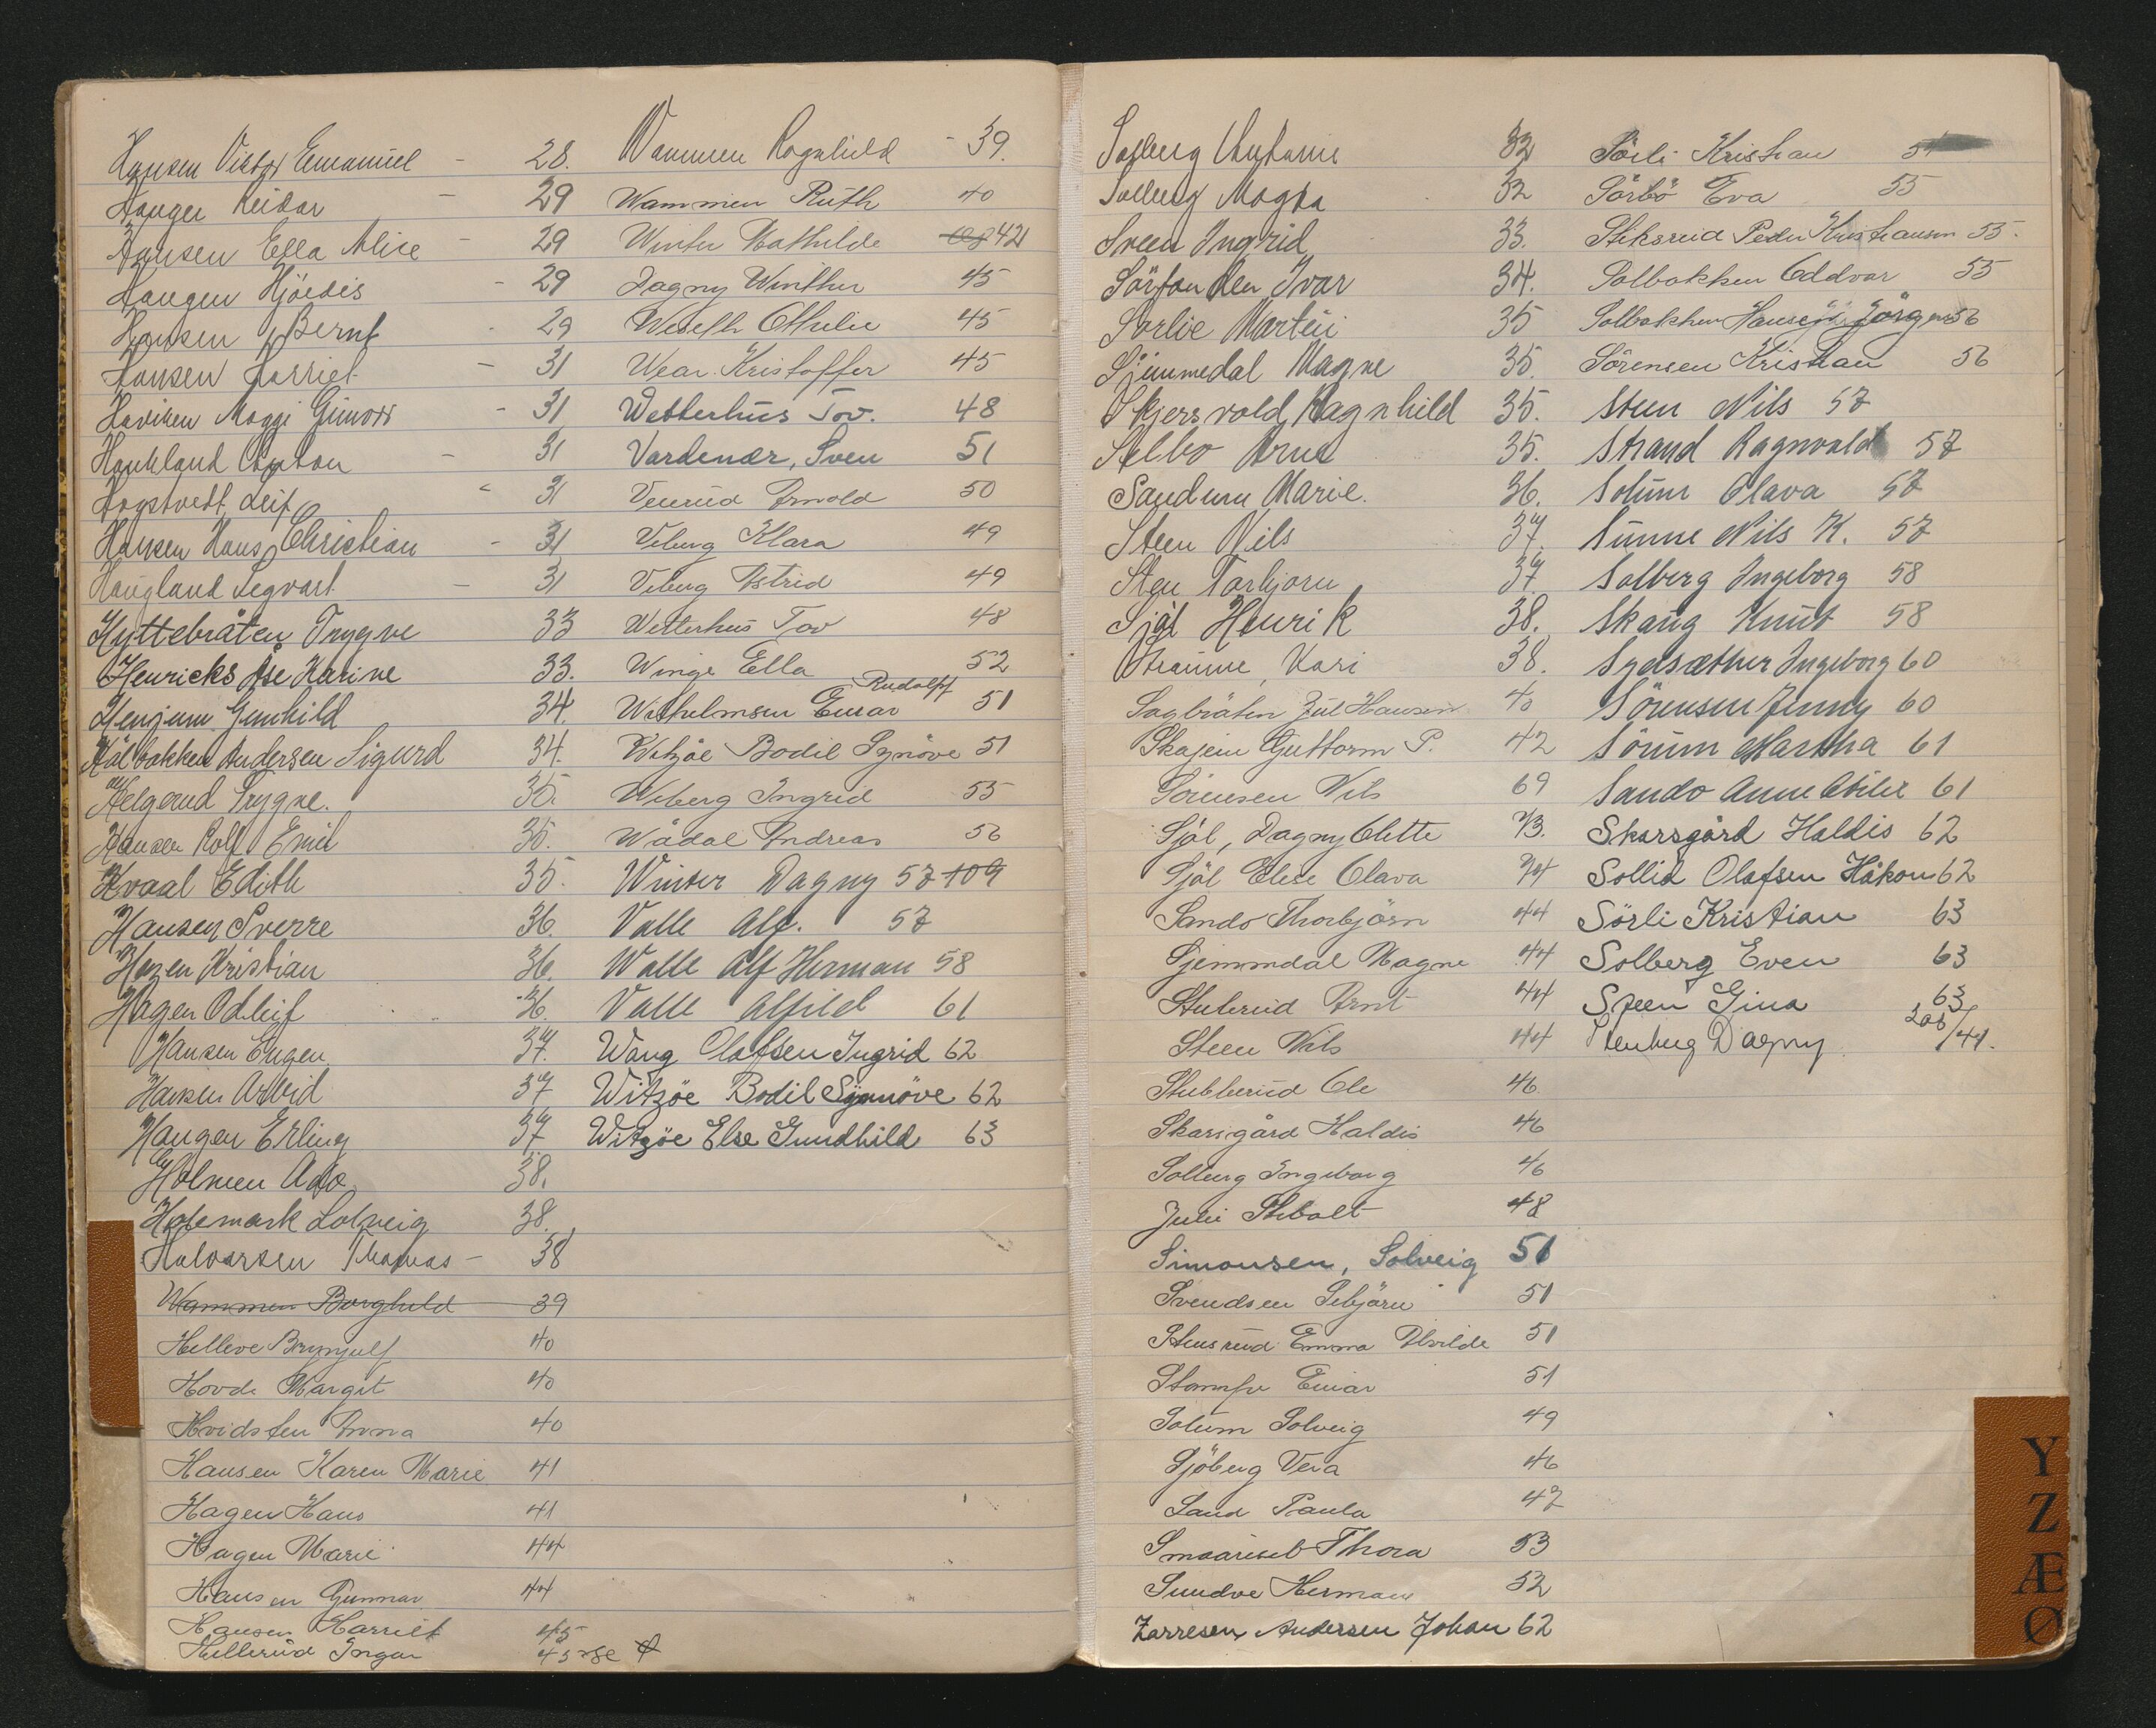 Hansen Victor Emanuel - 28.
Haugen Reidar - 29
Hansen Ella Alice - 29
Haugen Hjördis - 29
Hansen Bernt - 29
Hansen Harriet - 31
Haviken Maggi Gunvor - 31
Haukland - 31
Hogstvedt Leif - 31
Hansen Hans Christian - 31
Haugland Segvart - 31
Hyttebråten Trygve 33
Henricks Åse Karine 33.
Henjum Gunhild 34.
Hålbakken Andersen Sigurd 34.
Helgerud Trygve. 35.
Hansen Rolf Emil 35.
Hvaal Edith 35.
Hansen Sverre 36.
Hagen Kristian 36.
Hagen Odleif 36.
Hansen Eugen 37.
Hansen Arvid 37
Haugen Erling 37
Holmen 38.
Holemark Solveig 38.
Halvorsen Thomas - 38
Wammen Borghild 39
Helleve Brynjulf 40
Hovde Margit 40
Hvidsten Anna 40
Hansen Karen Marie 41
Hagen Hans 41
Hagen Marie 44
Hansen Gunnar 44
Hansen Harriet 45
Hellerud Ingar 45
Wammen Ragnhild - 39.
Wammen Ruth 40
Winter Mathilde 108 42
Dagny Winther 45
Weseth Othilie 45
Wear Kristoffer 45
Wetterhus Tov. 48
Vardenær, Sven 51
Venrud Arnold 50
Viberg Klara 49
Viberg Astrid 49
Wetterhus Tov 48
Winge Ella 52
Wilhelmsen Einar Rudolf 51
Witzöe Bodil Synöve 51
Wiberg Ingrid 55
Wådal Andreas 56
Winter Dagny 57 109
Valle Alf. 57
Walle Alf Herman 58
Valle Alfild 61
Wang Olafsen Ingrid 62
Witzöe Bodil Synnöve 62
Witzöe Else Gundhild 63
Solberg 32
Solberg Magna 32
Sveen Ingrid 33.
Ivar 34.
Sorlie Martin 35
Sjemmedal Magne 35.
Skjersvold Ragnhild 35.
Selbo Arne 35.
Sandum Marie. 36.
Steen Nils 37.
Sten Torbjorn 37.
Sjål Henrik 38.
Straume, Kari 38.
Sagbråten Jul Hansen 40
Skajem Guttorm P. 42
Sörensen Nils 69
Sjål, Dagny Olette 43.
Sjål Elise Olava 44
Sando Thorbjörn 44
Sjemmdal Magne 44
Stuberud Arnt 44
Steen Nils 44
Stubberud Ole 46
Skarsgård Haldis 46
Solberg Ingeborg 46
Juli Stibolt 48
Simonsen, Solveig 51
Svendsen 51
Stensrud Emma Alvilde 51
Stampe Einar 51
Solum Solveig 49
Sjöberg Vera 46
Sand Paula 47
Thora 53
Sundve Herman 52
Zarresen Andersen Johan 62
Sörli Kristian
Sörbö Eva 55
Stiksrud Peder Kristiansen 55.
Solbakken Oddvar 55
Solbakken Hansen Jörgen 56
Sörensen Kristian 56
Steen Nils 57
Strand Ragnvald 57
Solum Olava 57
Sunne Nils K. 57
Solberg Ingeborg 58
Skaug Knut 58
Sydsæther Ingeborg 60
Sörensen Jenny 60
Sörum Martha 61
Sando Anne 61
Skarsgård Haldis 62
Sollid Olafsen Håkon 62
Sörli Kristian 63
Solberg Even 63
Steen Gina 63
Stenberg Dagny 208/41.
Y
Z
Æ
Ø